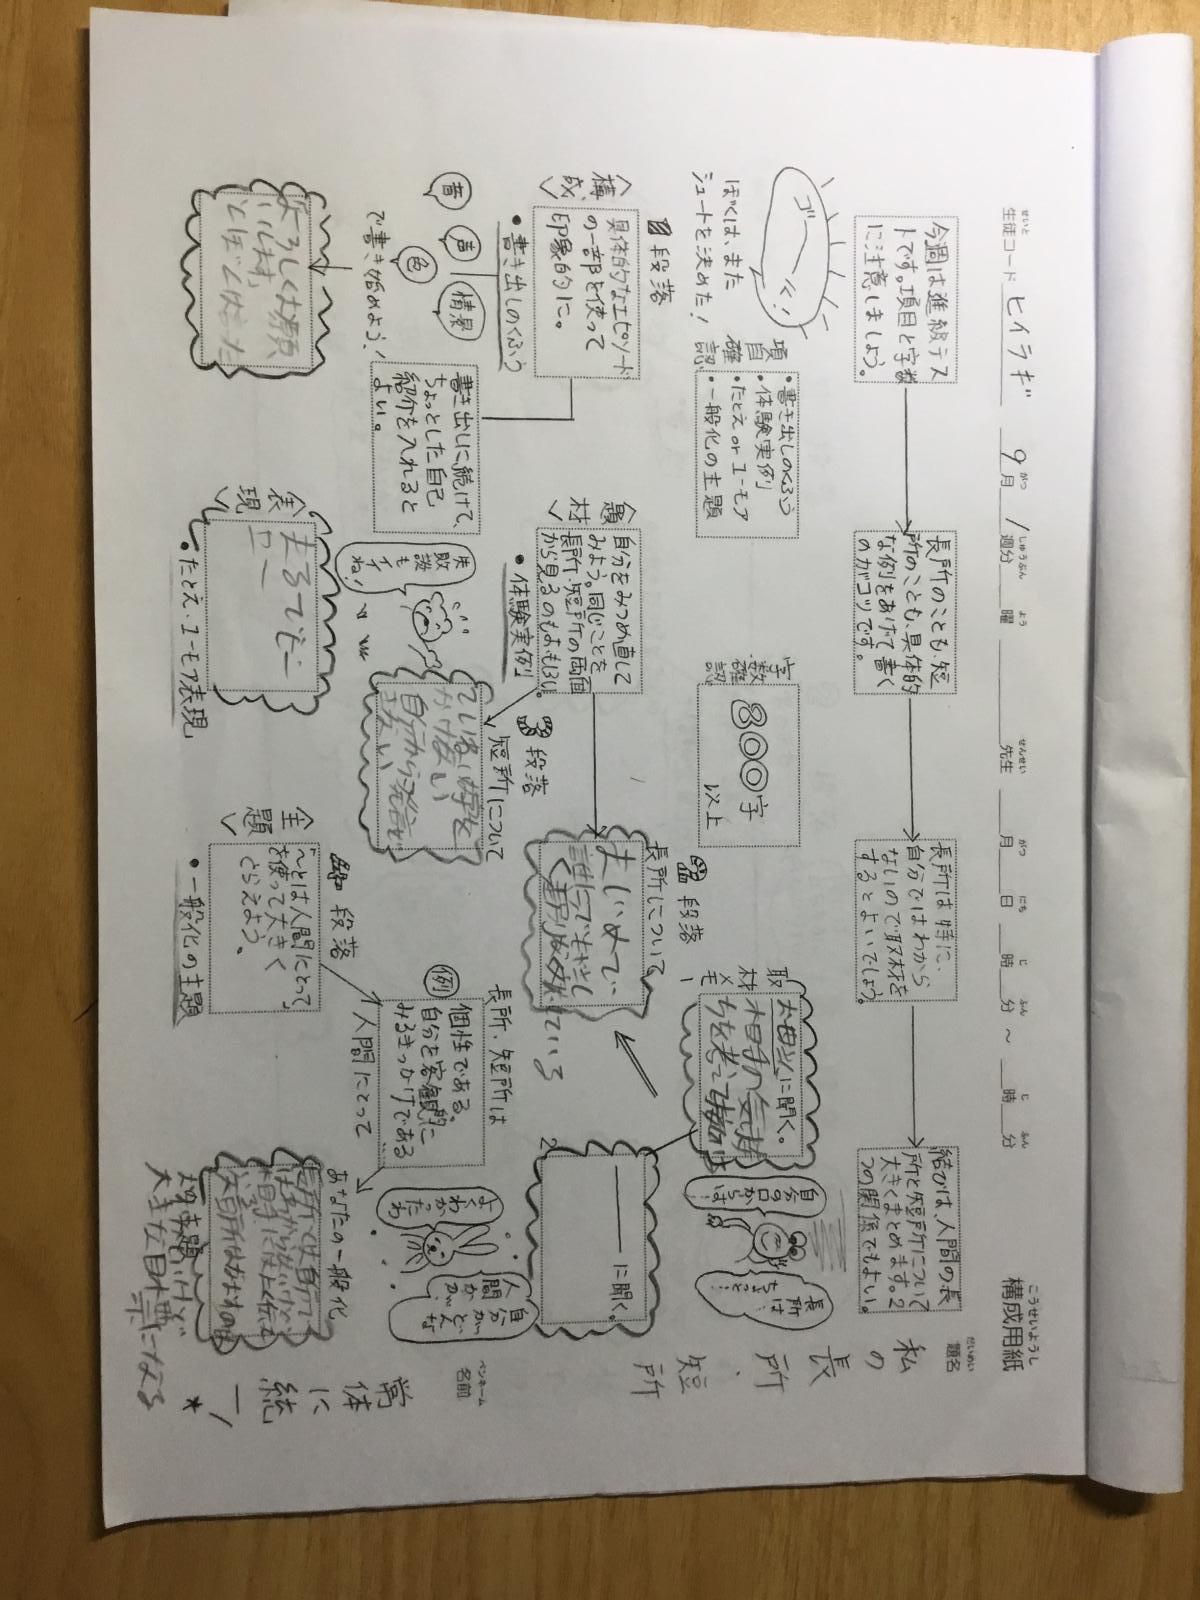 せいと
生徒コード ヒイラギ 9月1週分 曜 先生 月 日 時 分 〜 時 分
こうせいようし
構成用紙
だいめい
題名
私の長所、短所
ペンネーム
名前
常体に統一*
今週は進級テス
トです。項目と字数
に注意しましょう。
長所のことも、短
所のことも、具体的
な例をあげて書く
のがコツです。
長所は特に、
自分ではわから
ないので取材を
するとよいでしょう。
結びは、人間の長
所と短所について
大きくまとめます。2
つの関係でもよい。
ゴーール!
ぼくは、また
シュートを決めた!
項目確認
・書き出しのくふう
・体験実例
・たとえorユーモア
・一般化の主題
字数確認
800字
以上
取材メモ
1
お母さんに聞く。
相手の気持
ちを考えて
自分の口からは…
長所は
ちょっと…
2
に聞く。
〈構成〉
段落
具体的なエピソード
の一部を使って
印象的に。
・書き出しのくふう
音
声
色
情景
で書き始めよう!
よろしくお願
いします。
とぼくは言った
書き出しに続けて、
ちょっとした自己
紹介を入れると
よい。
〈題材〉
自分をみつめ直して
みよう。同じことを
長所・短所の両面
から見るのもおもしろい。
・体験実例
段落
長所について
誰にでも
ている
段落
短所について
自分から発言
失敗談も
イイね!
〈表現〉
まるで
・たとえ・ユーモア表現
〈主題〉
段落
「〜とは人間にとって」
を使って大きく
とらえよう。
・一般化の主題
長所、短所は
例
個性である。
自分を客観的に
みるきっかけである
人間にとって
あなたの一般化
長所とは自分で
はわからないけど
相手には
短所は
大きな目標になる
よくわかったわ
自分が
どんな
人間か